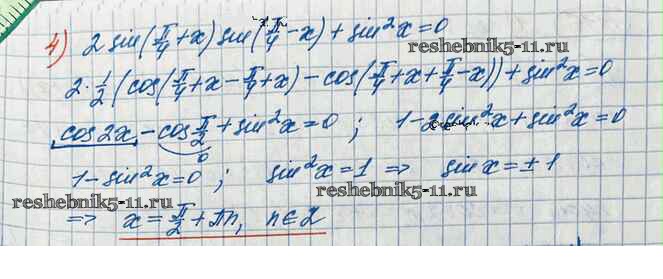 4) 2 sin(π/4+x) sin(π/4-x) + sin²x=0
reshebnik5-11.ru
2·1/2 (cos(π/4+x-π/4+x) - cos(π/4+x+π/4-x)) + sin²x=0
cos2x - cos π/2 + sin²x=0 ; 1-2sin²x+sin²x=0
0
1-sin²x=0 ; sin²x=1 => sinx=±1
reshebnik5-11.ru reshebnik5-11.ru
=> x=π/2+πn, n∈Z